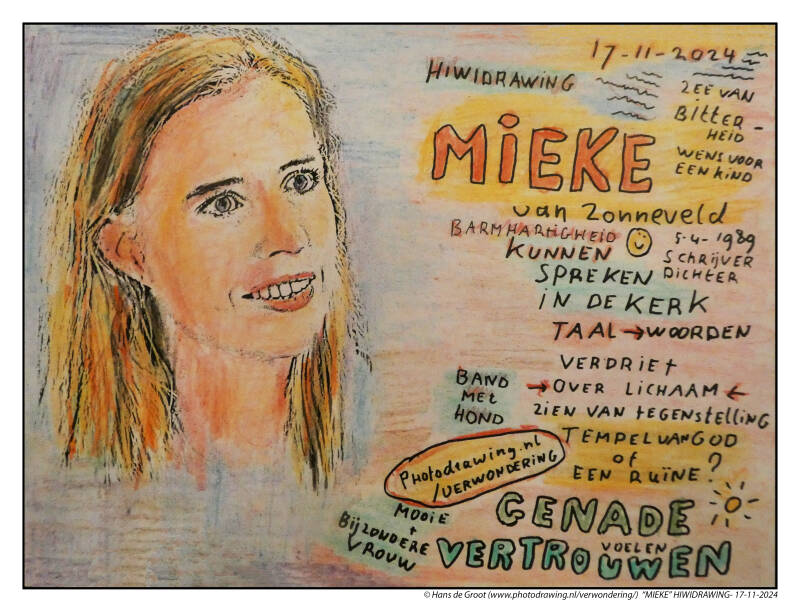 17-11-2024
HIWIDRAWING
ZEE VAN
BITTER-
HEID
WENS VOOR
EEN KIND
MIEKE
van Zonneveld
BARMHARTIGHEID
5-4-1989
SCHRIJVER
DICHTER
KUNNEN
SPREKEN
IN DE KERK
TAAL → WOORDEN
VERDRIET
→ OVER LICHAAM ←
ZIEN VAN TEGENSTELLING
BAND
MET
HOND
TEMPEL VAN GOD
OF
EEN RUÏNE?
Photodrawing.nl
/VERWONDERING
GENADE
VOELEN
VERTROUWEN
MOOIE
+
BIJZONDERE
VROUW
© Hans de Groot (www.photodrawing.nl/verwondering/) "MIEKE" HIWIDRAWING- 17-11-2024